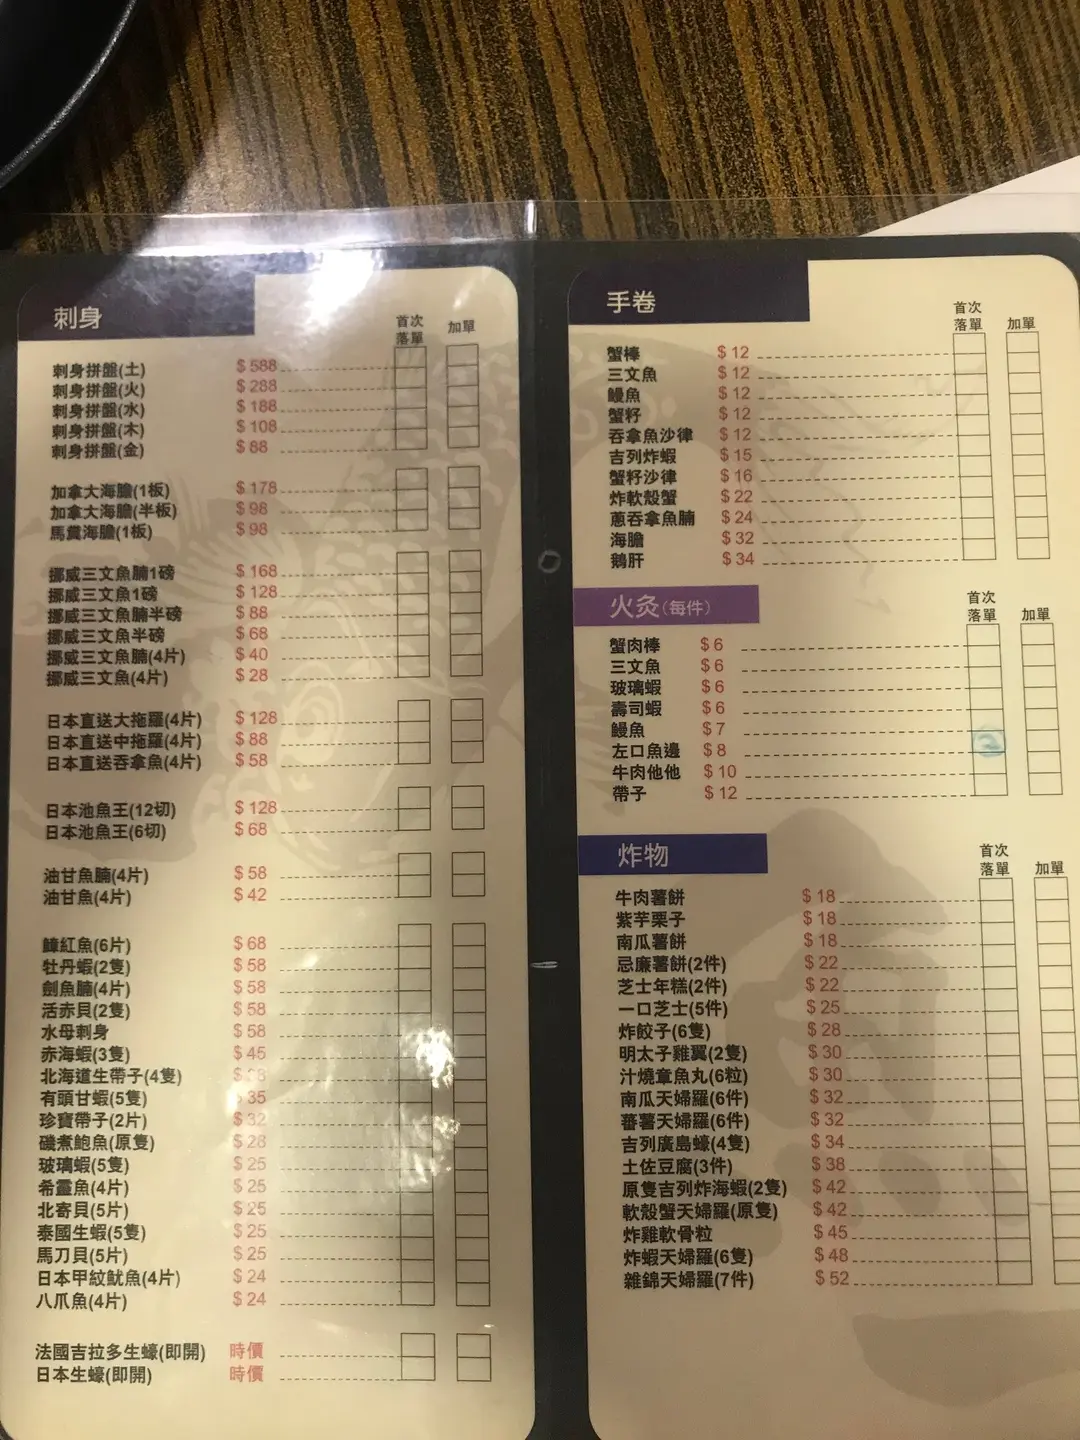 刺身
首次
落單 加單
刺身拼盤(土) $588
刺身拼盤(火) $288
刺身拼盤(水) $188
刺身拼盤(木) $108
刺身拼盤(金) $88
加拿大海膽(1板) $178
加拿大海膽(半板) $98
馬糞海膽(1板) $98
挪威三文魚腩1磅 $168
挪威三文魚1磅 $128
挪威三文魚腩半磅 $88
挪威三文魚半磅 $68
挪威三文魚腩(4片) $40
挪威三文魚(4片) $28
日本直送大拖羅(4片) $128
日本直送中拖羅(4片) $88
日本直送吞拿魚(4片) $58
日本池魚王(12切) $128
日本池魚王(6切) $68
油甘魚腩(4片) $58
油甘魚(4片) $42
鱆紅魚(6片) $68
牡丹蝦(2隻) $58
劍魚腩(4片) $58
活赤貝(2隻) $58
水母刺身 $58
赤海蝦(3隻) $45
北海道生帶子(4隻)
有頭甘蝦(5隻) $35
珍寶帶子(2片) $32
磯煮鮑魚(原隻) $28
玻璃蝦(5隻) $25
希靈魚(4片) $25
北寄貝(5片) $25
泰國生蝦(5隻) $25
馬刀貝(5片) $25
日本甲紋魷魚(4片) $24
八爪魚(4片) $24
法國吉拉多生蠔(即開) 時價
日本生蠔(即開) 時價
手卷
首次
落單 加單
蟹棒 $12
三文魚 $12
鰻魚 $12
蟹籽 $12
吞拿魚沙律 $12
吉列炸蝦 $15
蟹籽沙律 $16
炸軟殼蟹 $22
蔥吞拿魚腩 $24
海膽 $32
鵝肝 $34
火灸(每件)
首次
落單 加單
蟹肉棒 $6
三文魚 $6
玻璃蝦 $6
壽司蝦 $6
鰻魚 $7
左口魚邊 $8
牛肉他他 $10
帶子 $12
炸物
首次
落單 加單
牛肉薯餅 $18
紫芋栗子 $18
南瓜薯餅 $18
忌廉薯餅(2件) $22
芝士年糕(2件) $22
一口芝士(5件) $25
炸餃子(6隻) $28
明太子雞翼(2隻) $30
汁燒章魚丸(6粒) $30
南瓜天婦羅(6件) $32
蕃薯天婦羅(6件) $32
吉列廣島蠔(4隻) $34
土佐豆腐(3件) $38
原隻吉列炸海蝦(2隻) $42
軟殼蟹天婦羅(原隻) $42
炸雞軟骨粒 $45
炸蝦天婦羅(6隻) $48
雜錦天婦羅(7件) $52